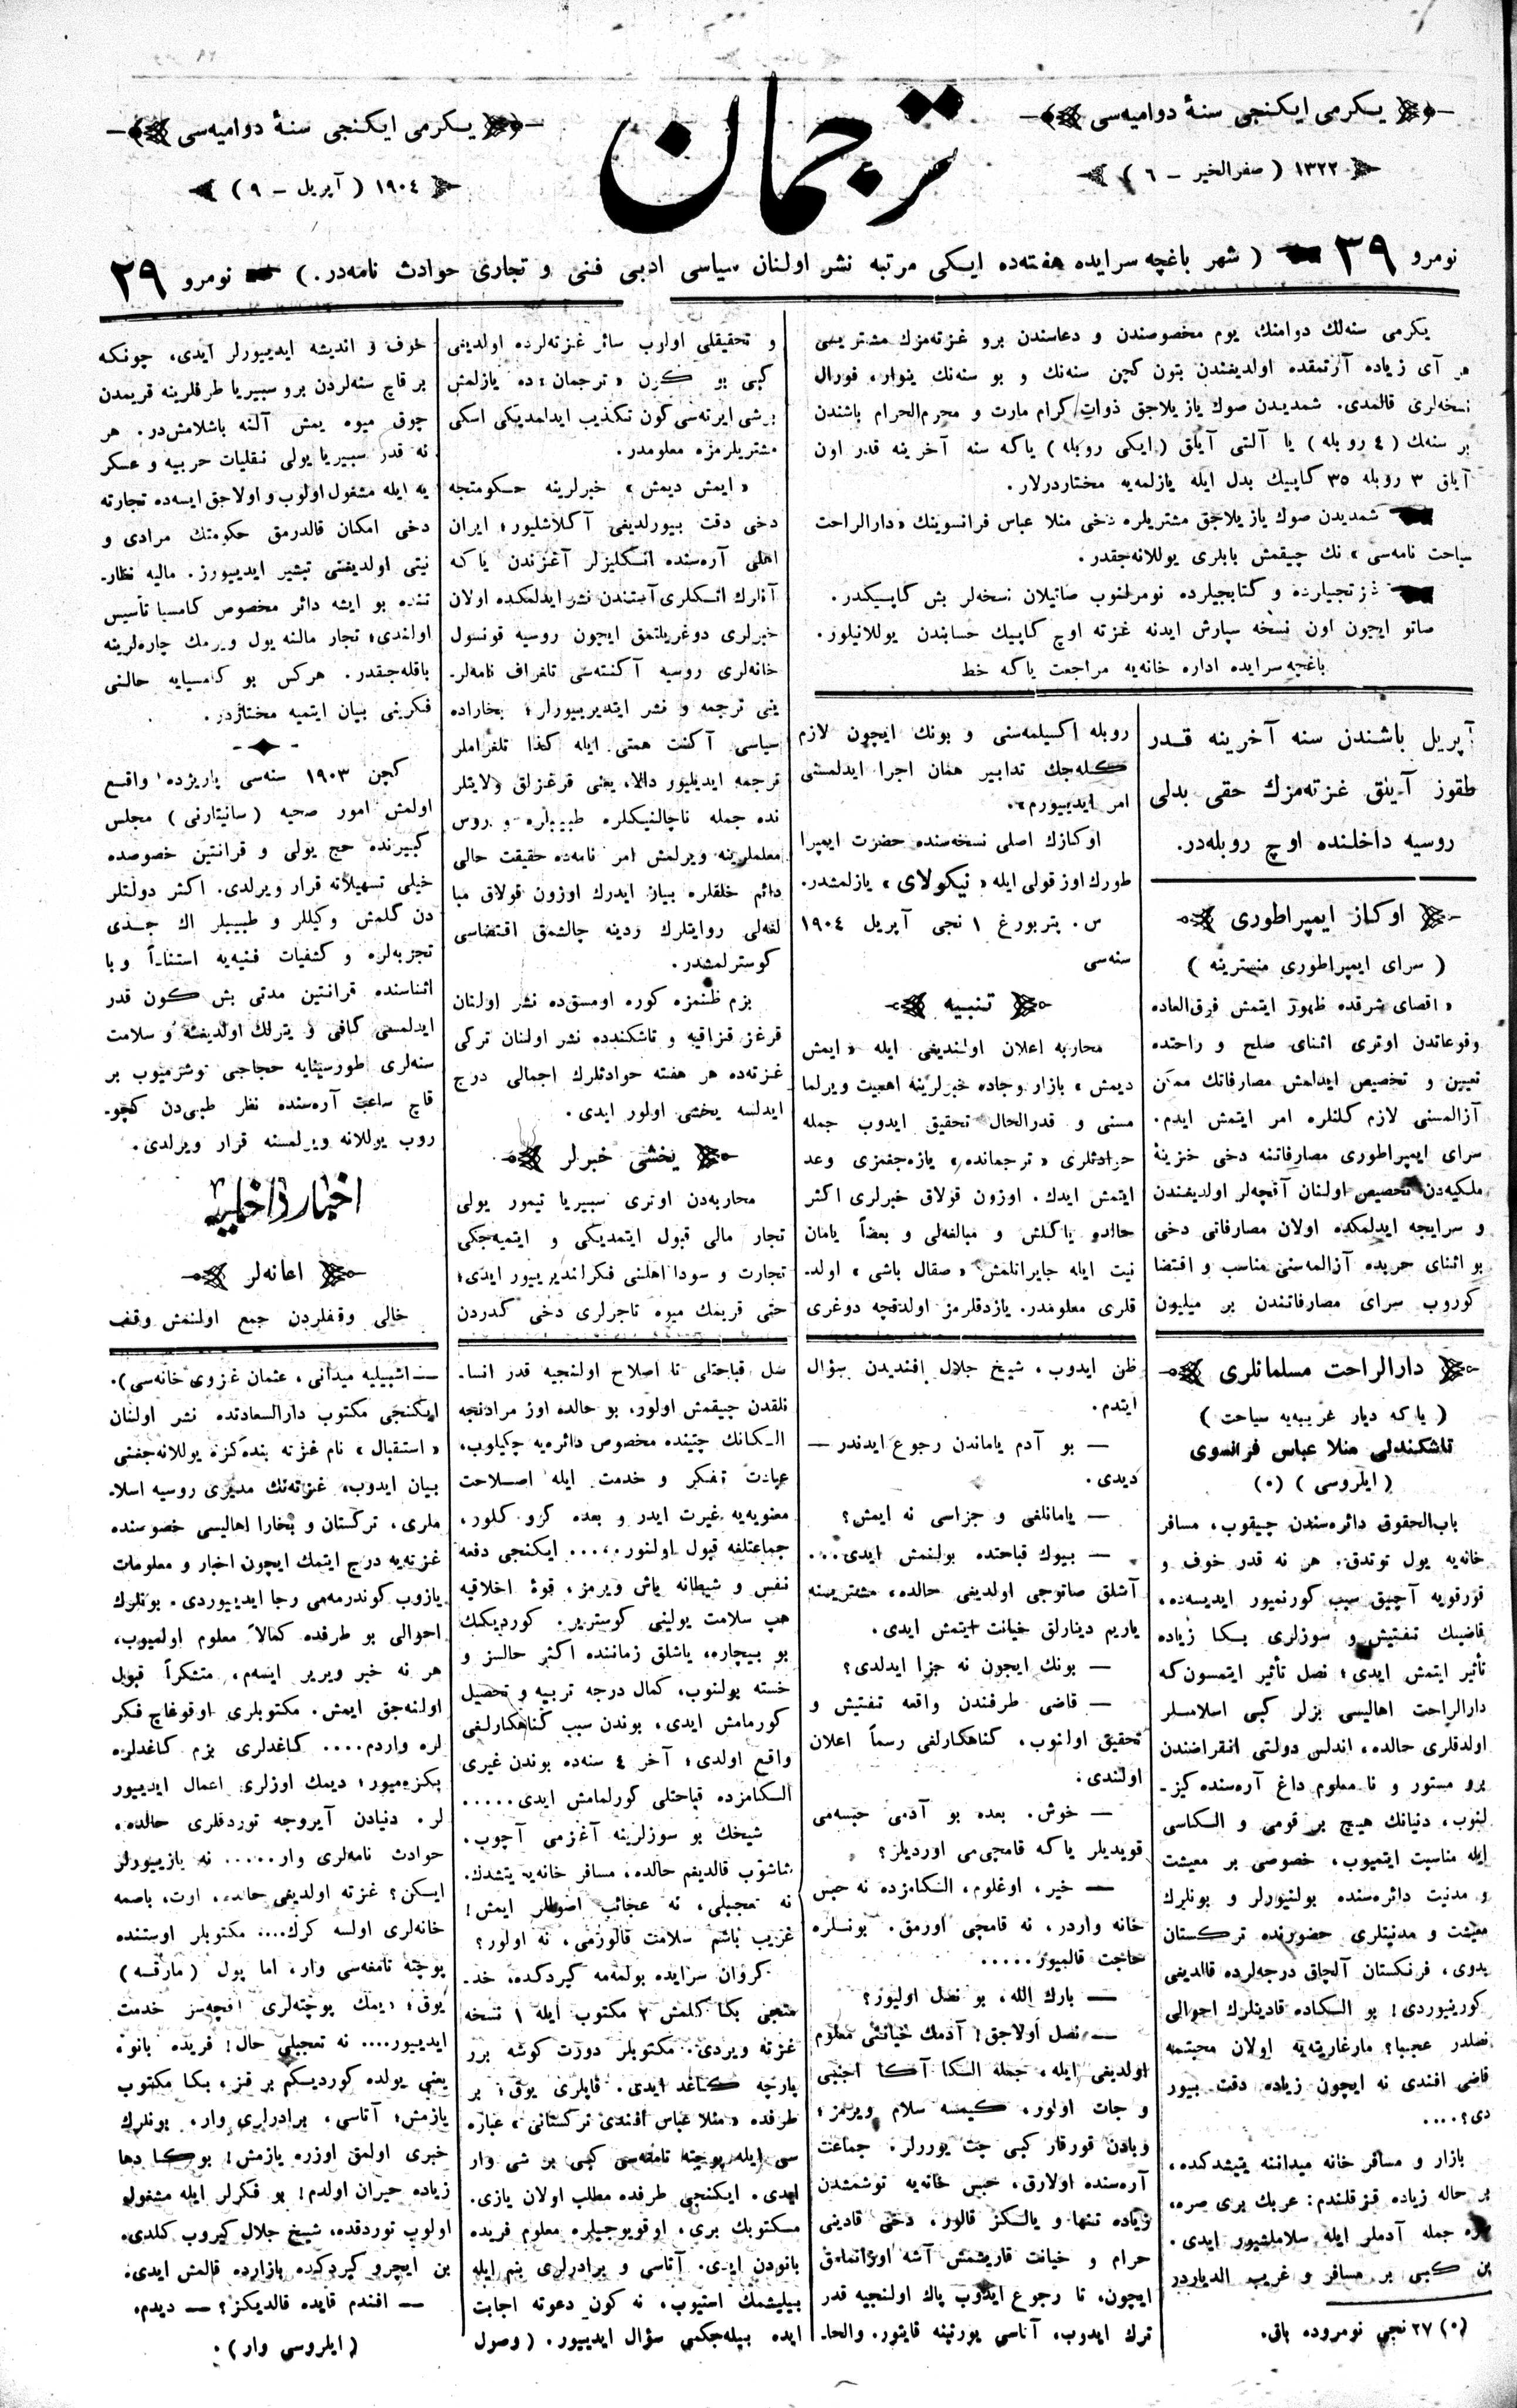 یكرمی ایكنجی سنۀ دوامیه‌سی
۱۳۲۲ ( صفرالخیر ـ ٦ )
ترجمان
یكرمی ایكنجی سنۀ دوامیه‌سی
۱۹۰٤ ( آپریل ـ ۹ )
نومرو ۳۹ ( شهر باغچه سرایده هفته‌ده ایكی مرتبه نشر اولنان سیاسی ادبی فنی و تجاری حوادث نامه‌در . ) نومرو ۲۹
یكرمی سنه‌لك دوامنك، یوم مخصوصندن و دعاسندن برو غزته‌مزك مشتریسی
هر آی زیاده آرتمقده اولدیغندن بتون كچن سنه‌نك و بو سنه‌نك ینوار، فورال
نسخه‌لری قالمدی. شمدیدن صوك یازیلاجق ذوات كرام مارت و محرم‌الحرام باشندن
بر سنه‌لك ( ٤ روبله ) یا آلتی آیلق ( ایكی روبله ) یاكه سنه آخرینه قدر اون
آیلق ۳ روبله ۳٥ كاپیك بدل ایله یازلمه‌یه مختاردرلار .
شمدیدن صوك یازیلاجق مشتریلره دخی منلا عباس فرانسوینك «دارالراحت
سیاحت نامه‌سی» نك چیقمش بابلری یوللانه‌جقدر .
غزتجیلرده و كتابجیلرده نومرلنوب صاتیلان نسخه‌لر بش كاپیكدر .
صاتو ایچون اون نسخه سپارش ایدنه غزته اوچ كاپیك حسابندن یوللانیلور .
باغچه سرایده اداره خانه‌یه مراجعت یاكه خط
آپریل باشندن سنه آخرینه قدر
طقوز آیلق غزته‌مزك حقی بدلی
روسیه داخلنده اوچ روبله‌در.
اوكاز ایمپراطوری
( سرای ایمپراطوری منسترینه )
« اقصای شرقده ظهور ایتمش فوق‌العاده
وقوعاتدن اوتری اثنای صلح و راحتده
تعیین و تخصیص ایدلمش مصارفاتك ممكن
آزالمسنی لازم كلنلره امر ایتمش ایدم .
سرای ایمپراطوری مصارفاتنه دخی خزینۀ
ملكیه‌دن تخصیص اولنان آقچه‌لر اولدیغندن
و سرایجه ایدلمكده اولان مصارفاتی دخی
بو اثنای حربده آزالمه‌سنی مناسب و اقتضا
كوروب سرای مصارفاتندن بر میلیون
روبله اكسیلمه‌سنی و بونك ایچون لازم
كله‌جك تدابیر همان اجرا ایدلمسنی
امر ایدییورم».
اوكازك اصلی نسخه‌سنده حضرت ایمپرا
طورك اوز قولی ایله « نیكولای » یازلمشدر.
س . پتربورغ ۱ نجی آپریل ۱۹۰٤
سنه‌سی
تنبیه
محاربه اعلان اولندیغی ایله « ایمش
دیمش » بازار وجاده خبرلرینه اهمیت ویرلما
مسنی و قدرالحال تحقیق ایدوب جمله
حوادثلری « ترجمانده » یازه‌جغمزی وعد
ایتمش ایدك . اوزون قولاق خبرلری اكثر
حالده یاكلش و مبالغه‌لی و بعضاً یامان
نیت ایله جایرانلمش « صقال باشی » اولد-
قلری معلومدر. یازدقلرمز اولدقچه دوغری
و تحقیقلی اولوب سائر غزته‌لرده اولدیغی
كبی بو كون « ترجمان » ده یازلمش
برشی ایرته‌سی كون تكذیب ایدلمدیكی اسكی
مشتریلرمزه معلومدر.
« ایمش دیمش » خبرلرینه حكومتجه
دخی دقت بیورلدیغی آكلاشلیور ؛ ایران
اهلی آره‌سنده انكلیزلر آغزندن یاكه
آنلرك انكلری آستندن نشر ایدلمكده اولان
خبرلری دوغریلتمق ایچون روسیه قونسول
خانه‌لری روسیه آكنته‌سی تلغراف نامه‌لر-
ینی ترجمه و نشر ایتدیرییورلر ؛ بخاراده
سیاسی آكنت همتی ایله كذا تلغراملر
ترجمه ایدیلیور دالا، یعنی قرغزلق ولایتلر
نده جمله ناچالنیكلره طبیبلره و روس
معلملرینه ویرلمش امر نامه‌ده حقیقت حالی
دائم خلقلره بیان ایدرك اوزون قولاق مبا
لغه‌لی روایتلرك ردینه چالشمق اقتضاسی
كوسترلمشدر.
بزم ظنمزه كوره اومسق‌ده نشر اولنان
قرغز قزاقیه و تاشكندده نشر اولنان تركی
غزته‌ده هر هفته حوادثلرك اجمالی درج
ایدلسه یخشی اولور ایدی .
یخشی خبرلر
محاربه‌دن اوتری سبیریا تیمور یولی
تجار مالی قبول ایتمدیكی و ایتمیه‌جكی
تجارت و سودا اهلنی فكرلندیرییور ایدی ؛
حتی قریمك میوه تاجرلری دخی كدردن
خوف و اندیشه ایدییورلر ایدی، چونكه
بر قاچ سنه‌لردن برو سبیریا طرفلرینه قریمدن
چوق میوه یمش آلنه باشلامش‌در . هر
نه قدر سبیریا یولی نقلیات حربیه و عسكر
یه ایله مشغول اولوب و اولاجق ایسه‌ده تجارته
دخی امكان قالدرمق حكومتك مرادی و
نیتی اولدیغنی تبشیر ایدییورز . مالیه نظار-
تنده بو ایشه دائر مخصوص كامسیا تأسیس
اولندی ؛ تجار مالنه یول ویرمك چاره‌لرینه
باقله‌جقدر . هركس بو كامسیایه حالنی
فكرینی بیان ایتمیه مختاردر .
كچن ۱۹۰۳ سنه‌سی پاریزده واقع
اولمش امور صحیه ( سانیتارنی ) مجلس
كبیرنده حج یولی و قرانتین خصوصده
خیلی تسهیلاته قرار ویرلدی . اكثر دولتلر
دن كلمش وكیللر و طبیبلر اك جدی
تجربه‌لره و كشفیات فنیه‌یه استناداً وبا
اثناسنده قرانتین مدتی بش كون قدر
ایدلمسی كافی و یترلك اولدیغنه و سلامت
سنه‌لری طورسینایه حجاجی توشرمیوب بر
قاچ ساعت آره‌سنده نظر طبی‌دن كچو-
روب یوللانه ویرلمسنه قرار ویرلدی .
اخبار داخلیه
اعانه‌لر
خالی وقفلردن جمع اولنمش وقف
دارالراحت مسلمانلری
( یاكه دیار غریبه‌یه سیاحت )
تاشكندلی منلا عباس فرانسوی
( ایلروسی ) (٥)
باب‌الحقوق دائره‌سندن چیقوب، مسافر
خانه‌یه یول توتدق. هر نه قدر خوف و
قورقویه آچیق سبب كورنمیور ایدیسه‌ده،
قاضینك تفتیش و سوزلری بكا زیاده
تأثیر ایتمش ایدی ؛ نصل تأثیر ایتمسون كه
دارالراحت اهالیسی بزلر كبی اسلامسلر
اولدقلری حالده، اندلس دولتی انقراضندن
برو مستور و نا معلوم داغ آره‌سنده كیز-
لنوب، دنیانك هیچ بر قومی و الكاسی
ایله مناسبت ایتمیوب، خصوصی بر معیشت
و مدنیت دائره‌سنده بولنیورلر و بونلرك
معیشت و مدنیتلری حضورنده تركستان
بدوی، فرنكستان آلچاق درجه‌لرده قالدیغی
كورینیوردی ! بو الكاده قادینلرك احوالی
نصلدر عجبا ؟ مارغاریته‌یه اولان محبتمه
قاضی افندی نه ایچون زیاده دقت بیور
دی ؟ ....
بازار و مسافر خانه میداننه یتیشدكده،
بر حاله زیاده قزقلندم : عربك بری صره،
صره جمله آدملر ایله سلاملشیور ایدی .
بن كبی بر مسافر و غریب الدیاردر
(٥) ۲۷ نجی نومروده باق.
ظن ایدوب، شیخ جلال افندیدن سؤال
ایتدم.
— بو آدم یاماندن رجوع ایدندر —
دیدی .
— یامانلغی و جزاسی نه ایمش ؟
— بیوك قباحتده بولنمش ایدی...
آشلق صاتوجی اولدیغی حالده، مشتریسنه
یاریم دینارلق خیانت ایتمش ایدی.
— بونك ایچون نه جزا ایدلدی ؟
— قاضی طرفندن واقعه تفتیش و
تحقیق اولنوب، كناهكارلغی رسماً اعلان
اولندی .
— خوش . بعده بو آدمی حبسه‌می
قویدیلر یاكه قامچی‌می اوردیلر ؟
— خیر، اوغلوم، الكامزده نه حبس
خانه واردر، نه قامچی اورمق . بونلره
حاجت قالمیور .....
— بارك الله، بو نصل اولیور ؟
— نصل اولاجق ! آدمك خیانتی معلوم
اولدیغی ایله، جمله الكا آكا اجنبی
و جات اولور، كیمسه سلام ویرمز ؛
وبادن قورقار كبی چت یوررلر . جماعت
آره‌سنده اولارق، حبس خانه‌یه توشمشدن
زیاده تنها و یالكز قالور، دخی قادینی
حرام و خیانت قاریشمش آشه اوزانمامق
ایچون، تا رجوع ایدوب پاك اولنجیه قدر
ترك ایدوب، آناسی یورتینه قایتور . والحا-
صل قباحتلی تا اصلاح اولنجیه قدر انسا-
نلقدن چیقمش اولور، بو حالده اوز مرادنجه
الكانك چتینده مخصوص دائره‌یه چكیلوب،
عبادت تفكر و خدمت ایله اصلاحت
معنویه‌یه غیرت ایدر و بعده كرو كلور،
جماعتلغه قبول اولنور .... ایكنجی دفعه
نفس و شیطانه باش ویرمز، قوۀ اخلاقیه
هپ سلامت یولینی كوستریر . كوردیكك
بو بیچاره، یاشلق زماننده اكثر حالسز و
خسته بولنوب، كمال درجه تربیه و تحصیل
كورمامش ایدی، بوندن سبب كناهكارلغی
واقع اولدی ؛ آخر ٤ سنه‌ده بوندن غیری
الكامزده قباحتلی كورلمامش ایدی .....
شیخك بو سوزلرینه آغزمی آچوب،
شاشوب قالدیغم حالده، مسافر خانه‌یه یتشدك.
نه تعجبلی، نه عجائب اصوللر ایمش !
غریب باشم سلامت قالورمی، نه اولور ؟
كروان سرایده بولمه‌مه كیردكده، خد-
متجی بكا كلمش ۲ مكتوب ایله ۱ نسخه
غزته ویردی . مكتوبلر دورت كوشه برر
پارچه كاغد ایدی . قابلری یوق ؛ بر
طرفده « منلا عباس افندی تركستانی » عباره
سی ایله پوچته تامغه‌سی كبی بر شی وار
ایدی . ایكنجی طرفده مطلب اولان یازی.
مكتوبك بری، اوقویوجیلره معلوم فریده
بانودن ایدی. آتاسی و برادرلری بنم ایله
بیلیشمك استیوب، نه كون دعوته اجابت
ایده بیله‌جكمی سؤال ایدییور . ( وصول
— اشبیلیه میدانی، عثمان غزوی خانه‌سی).
ایكنجی مكتوب دارالسعادتده نشر اولنان
« استقبال » نام غزته بندەكزه یوللانه‌جغنی
بیان ایدوب، غزته‌نك مدیری روسیه اسلا-
ملری، تركستان و بخارا اهالیسی خصوصنده
غزته‌یه درج ایتمك ایچون اخبار و معلومات
یازوب كوندرمه‌می رجا ایدییوردی . بونلرك
احوالی بو طرفده كمالاً معلوم اولمیوب،
هر نه خبر ویریر ایسه‌م، متشكراً قبول
اولنه‌جق ایمش . مكتوبلری اوقوغاچ فكر
لره واردم .... كاغدلری بزم كاغدلره
بكزه‌میور ؛ دیمك اوزلری اعمال ایدییور
لر . دنیادن آیروجه توردقلری حالده،
حوادث نامه‌لری وار ..... نه یازییورلر
ایسكن ؟ غزته اولدیغی حالده، اوت، باصمه
خانه‌لری اولسه كرك .... مكتوبلر اوستنده
پوچته تامغه‌سی وار، اما پول ( مارقه )
یوق ؛ دیمك پوچته‌لری اقچه‌سز خدمت
ایدییور.... نه تعجبلی حال ! فریده بانو،
یعنی یولده كوردیكم بر قز، بكا مكتوب
یازمش ؛ آتاسی، برادرلری وار، بونلرك
خبری اولمق اوزره یازمش ! بوكا دها
زیاده حیران اولدم ! بو فكرلر ایله مشغول
اولوب توردقده، شیخ جلال كیروب كلدی.
بن ایچرو كیردكده بازارده قالمش ایدی.
— افندم قایده قالدیكز ؟ — دیدم،
( ایلروسی وار ) .